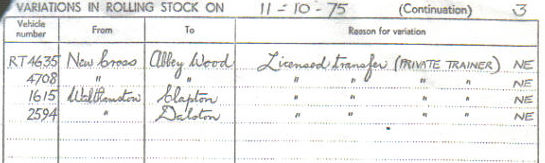 VARIATIONS IN ROLLING STOCK ON 11-10-75 (Continuation) 3
Vehicle number From To Reason for variation
RT4635 New Cross Abbey Wood Licensed transfer (PRIVATE TRAINER) NE
4708 " " " " " " NE
1615 Walthamstow Clapton " " " " NE
2594 " Dalston " " " " NE